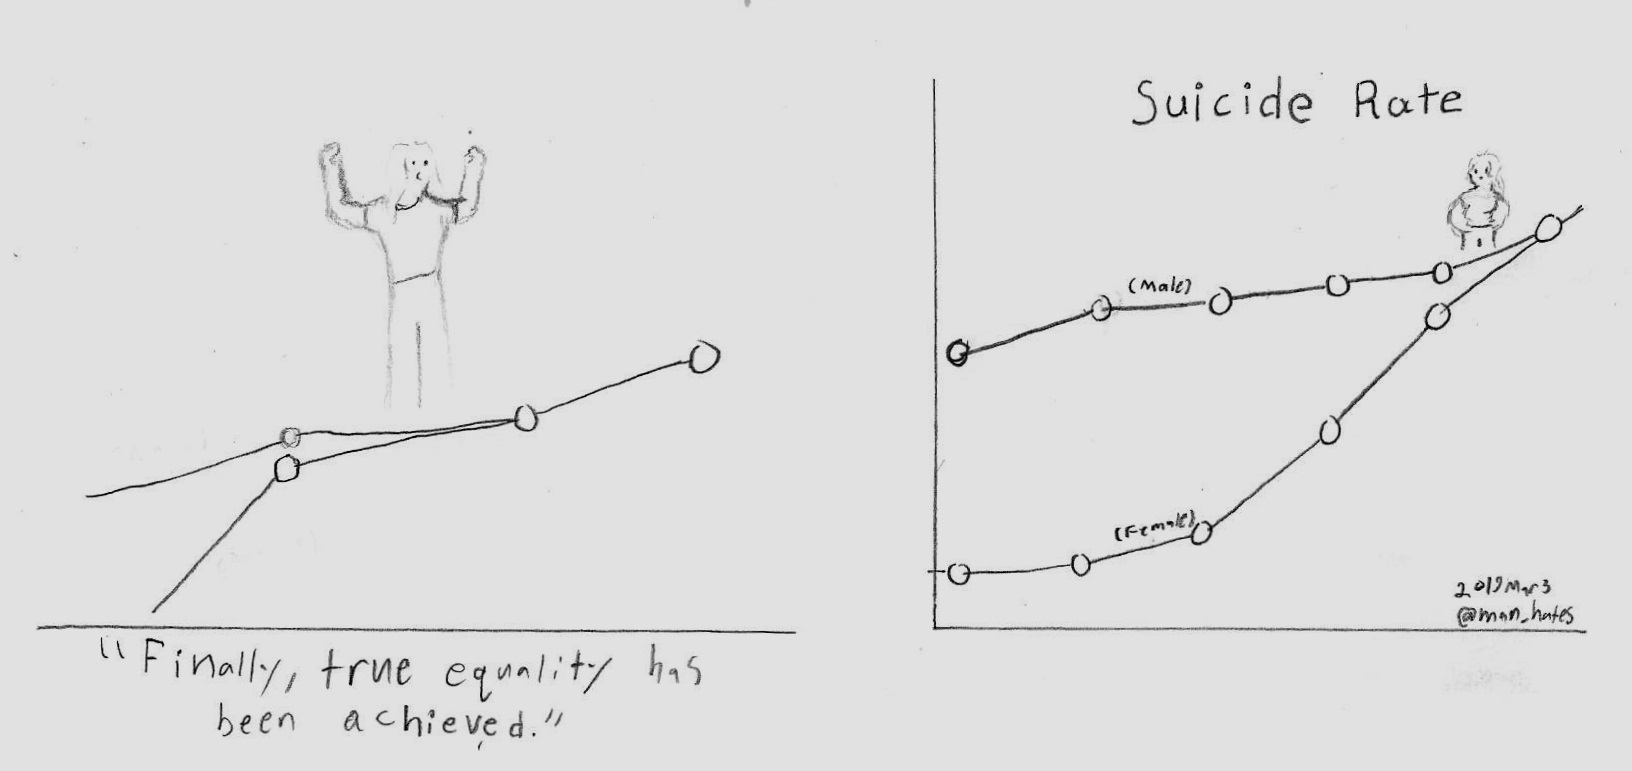 "Finally, true equality has
been achieved."
Suicide Rate
(Male)
(Female)
2019 Mar 3
@man_hates